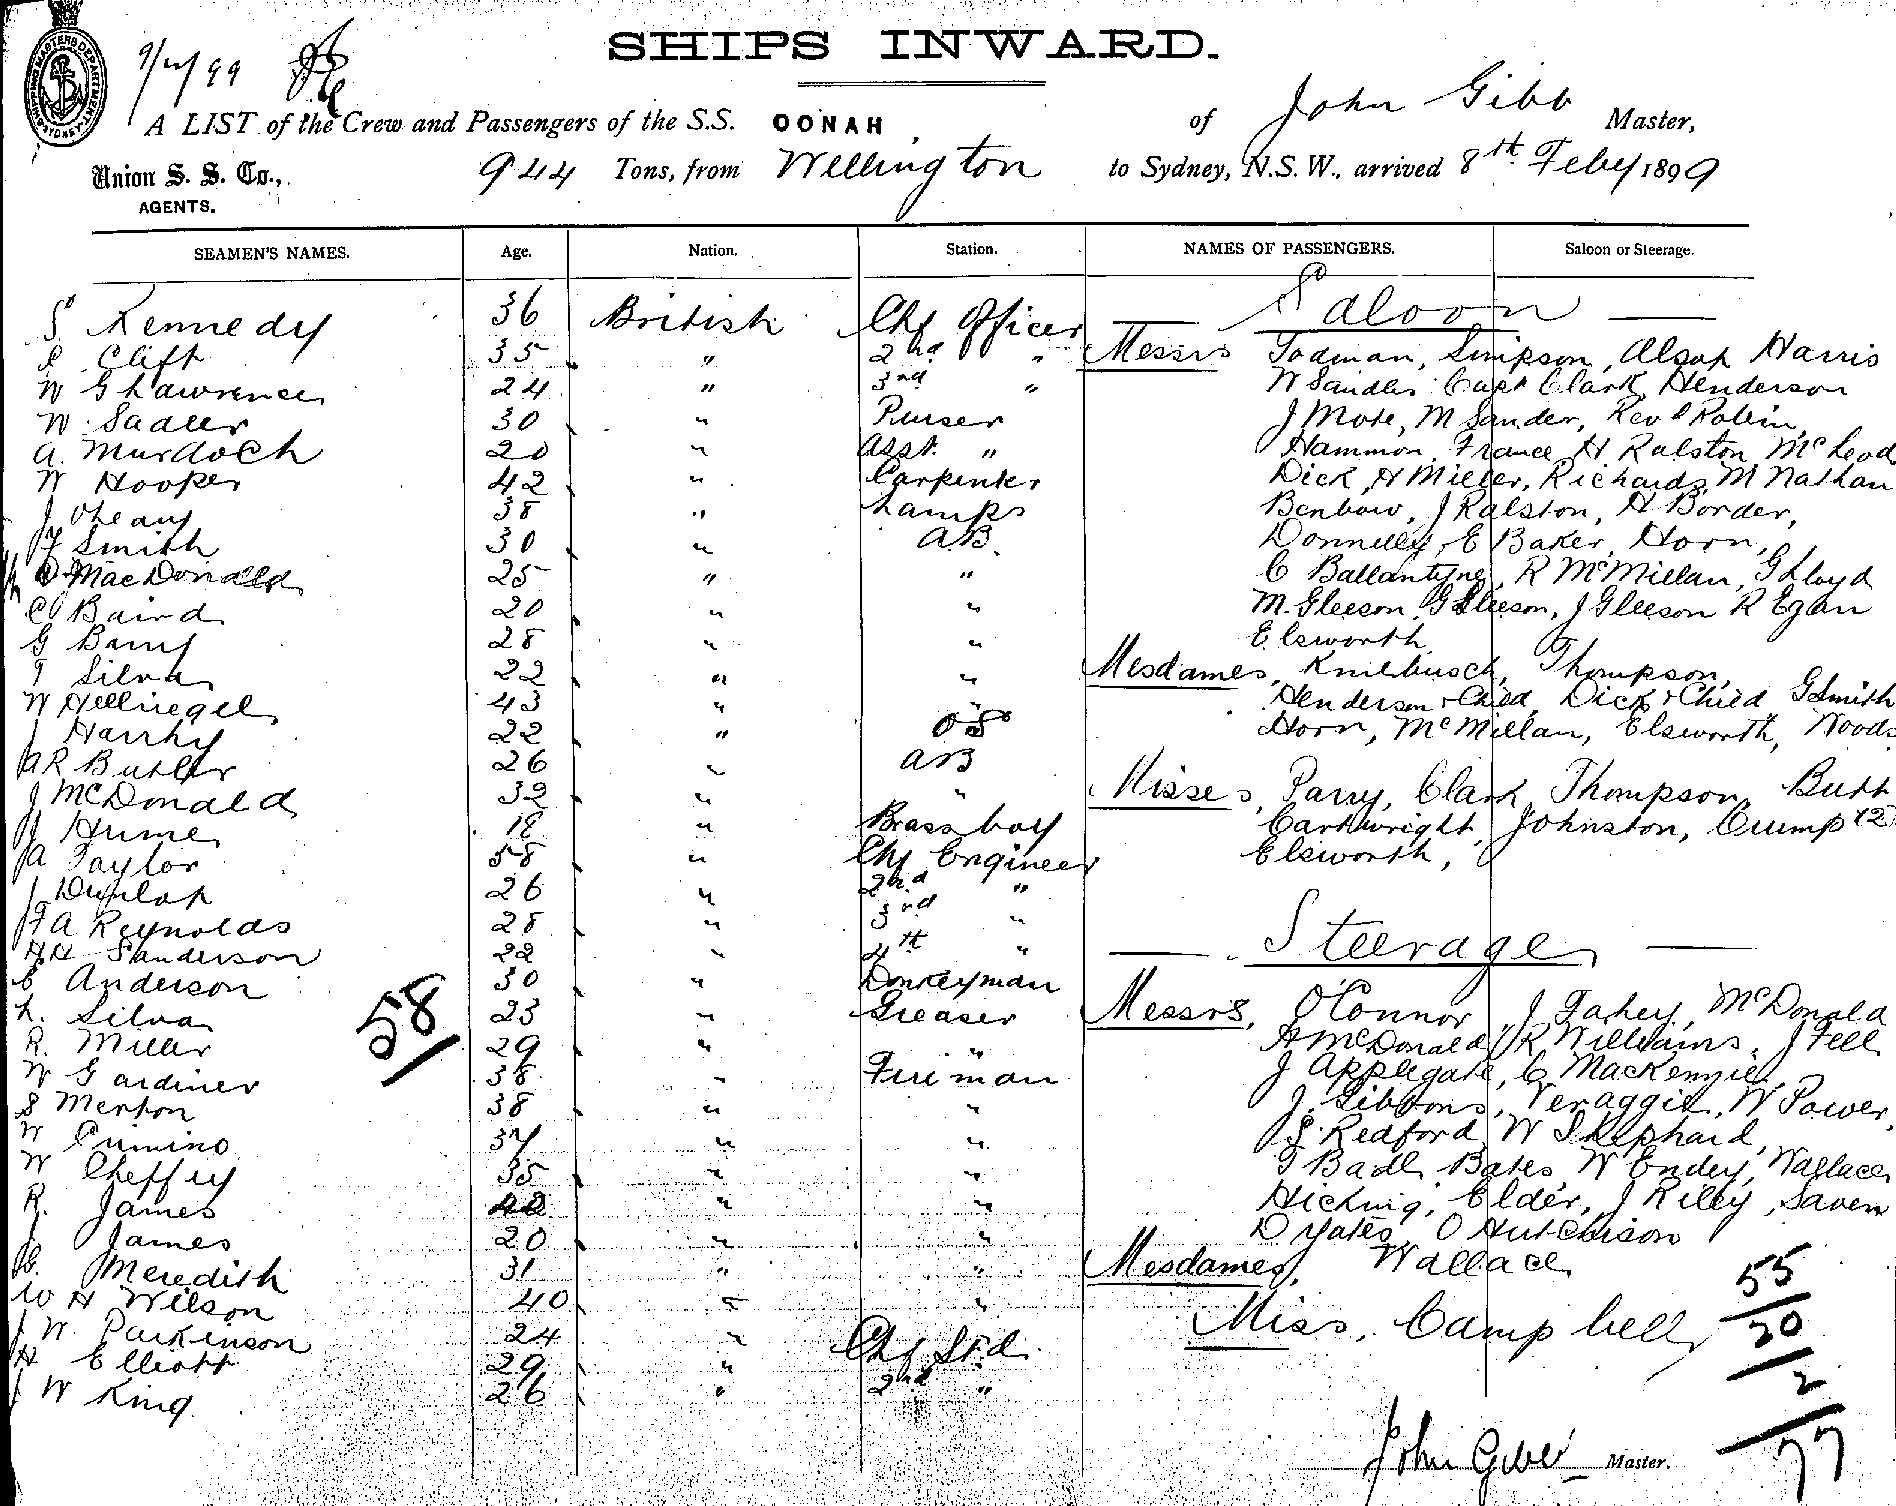 SHIPS INWARD.
A LIST of the Crew and Passengers of the S.S. OONAH of John Gibb Master,
Union S. S. Co., 944 Tons, from Wellington to Sydney, N.S.W., arrived 8th Feby 1899
AGENTS.
SEAMEN'S NAMES. Age. Nation. Station. NAMES OF PASSENGERS. Saloon or Steerage.
S Kennedy 36 British Chf Officer
Clift 35 " 2nd "
W G Lawrence 24 " 3rd "
W. Sadler 30 " Purser
A. Murdoch 20 " Asst. "
W Hooper 42 " Carpenter
J 38 " Lamps
Smith 30 " AB.
MacDonald 25 " "
C Baird 20 " "
G Barry 28 " "
T Silva 22 " "
W Hellriegel 43 " "
J 22 " OS
A R Butler 26 " AB
J McDonald 32 " "
Hume 18 " Brassboy
A Taylor 58 " Chf Engineer
J Dunlop 26 " 2nd "
F A Reynolds 28 " 3rd "
H H Sanderson 22 " 4th "
C Anderson 30 " Donkeyman
L. Silva 23 " Greaser
R. Miller 29 " "
W Gardiner 38 " Fireman
S Merton 38 " "
W Primino 37 " "
W Cheffey 35 " "
R. James 42 " "
J James 20 " "
Meredith 31 " "
W H Wilson 40 " "
J W Parkinson 24 " Chf Std.
H Elliott 29 " 2nd "
J W King 26 "
58
Saloon
Messrs Todman, Simpson, Alsop Harris
W Sandler Capt Clark Henderson
J More, M Sander, Revd Robin,
Hammon, France H Ralston McLeod
Dick, H Miller, Richards, M Nathan
Benbow, J Ralston, H Border,
Donnelly, E Baker, Horn,
C Ballantyne, R McMillan, G Lloyd
M. Gleeson, G Gleeson, J Gleeson R Egan
Elsworth
Mesdames, Knilbusch, Thompson,
Henderson + Child, Dick + Child G Smith
Horn, McMillan, Elsworth, Woods
Misses, Parry, Clark, Thompson, Butt
Cartwright, Johnston, Crump (2)
Elsworth,
Steerage
Messrs, O'Connor J Fahey, McDonald
H McDonald, R Williams, J Fell
J Applegate, C MacKenzie,
J. Gibbons, Veraggit, W Power,
S. Redford W Shephard,
Badl Bates W Endey, Wallace
Hicking, Elder, J Riley, Saven
D Yates, O Hutchison
Mesdames, Wallace
Miss, Campbell
55
20
2
77
John Gibb Master.